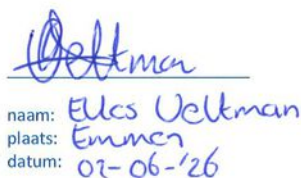 Veltman
naam: Elles Veltman
plaats: Emmen
datum: 02-06-'26